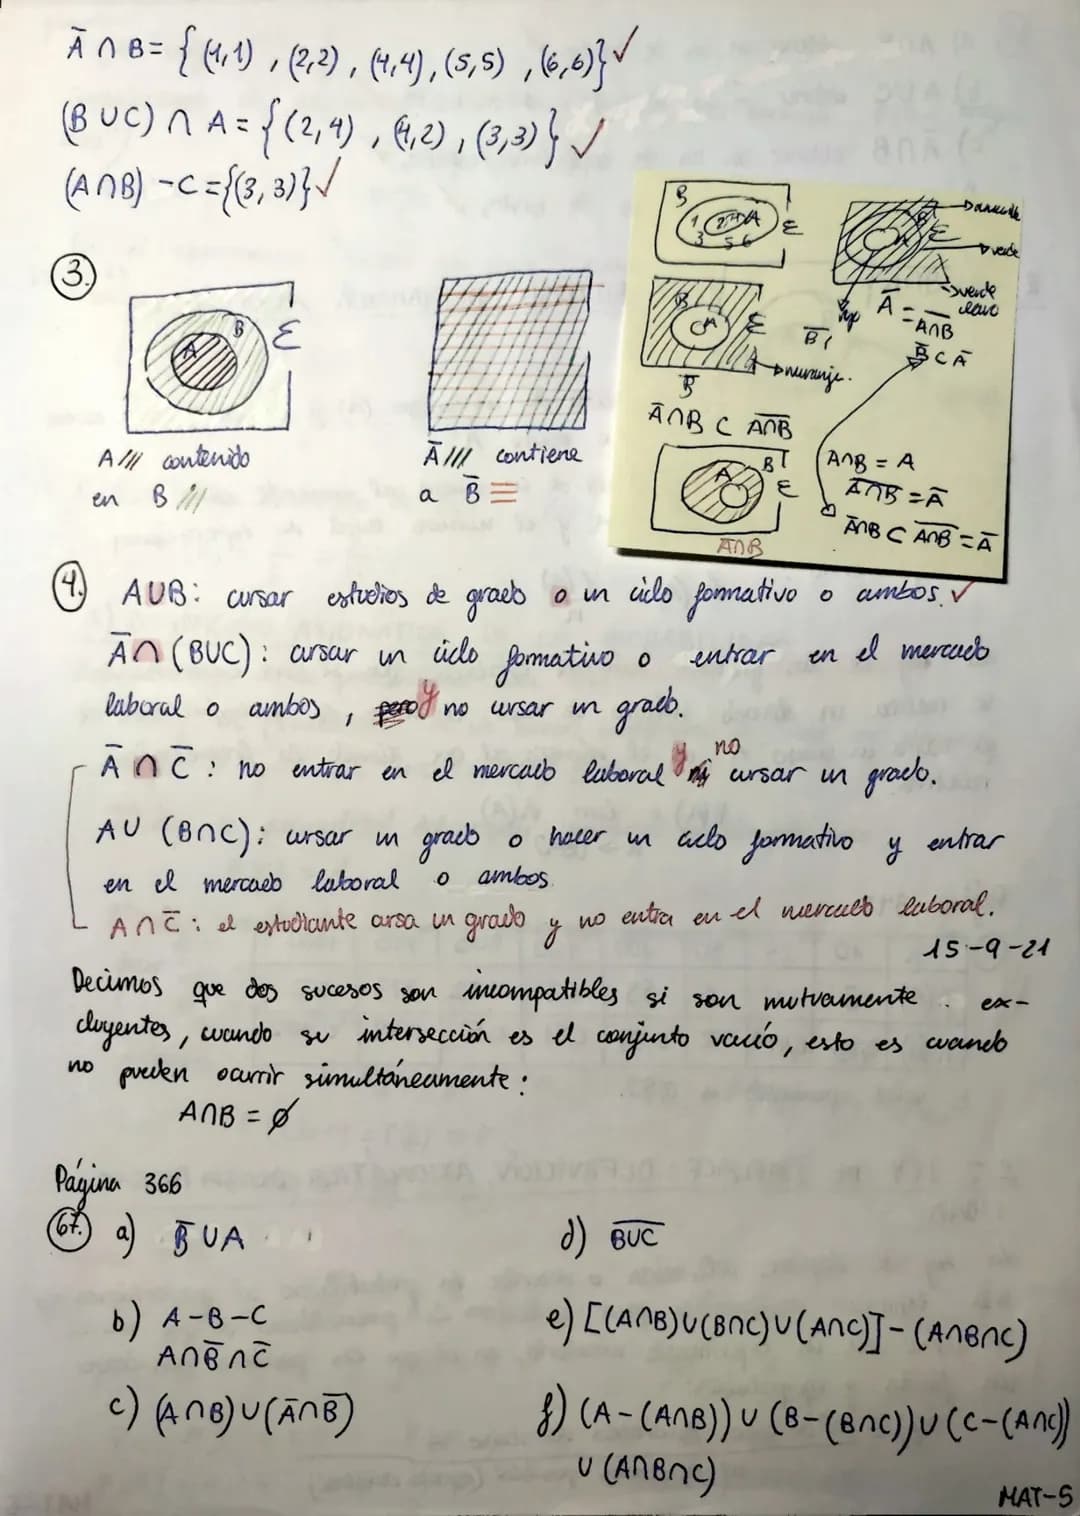 Ā ∩ B = { (1,1) , (2,2) , (4,4) , (5,5) , (6,6)} ✓
(B ∪ C) ∩ A = { (2,4) , (4,2) , (3,3) } ✓
(A ∩ B) - C = {(3,3)} ✓
3.
A B Ɛ
A /// contenido
en B ///
Ā /// contiene
a B̅ ≡
B
1 2 4 A Ɛ
3 5 6
B A Ɛ
B̅
naranja.
Ā∩B ⊂ \overline{A∩B}
A B Ɛ
Ā∩B
B Ɛ
verde
verde
claro
Ā = \overline{A∩B}
B̅ ⊂ Ā
A∩B = A
\overline{A∩B} = Ā
Ā∩B ⊂ \overline{A∩B} = Ā
4. A∪B: cursar estudios de grado o un ciclo formativo o ambos. ✓
Ā ∩ (B∪C) : cursar un ciclo formativo o entrar en el mercado
laboral o ambos, pero y no cursar un grado.
Ā ∩ C̅ : no entrar en el mercado laboral y no ni cursar un grado.
A∪ (B∩C) : cursar un grado o hacer un ciclo formativo y entrar
en el mercado laboral o ambos.
A∩C̅ : el estudiante cursa un grado y no entra en el mercado laboral.
15-9-21
Decimos que dos sucesos son incompatibles si son mutuamente ex-
cluyentes, cuando su intersección es el conjunto vacío, esto es cuando
no pueden ocurrir simultáneamente :
A∩B = ∅
Página 366
67. a) B̅ ∪ A
b) A - B - C
A∩B̅∩C̅
c) (A∩B)∪(Ā∩B̅)
d) \overline{B∪C}
e) [(A∩B)∪(B∩C)∪(A∩C)] - (A∩B∩C)
f) (A-(A∩B)) ∪ (B-(B∩C)) ∪ (C-(A∩C))
∪ (A∩B∩C)
MAT-5